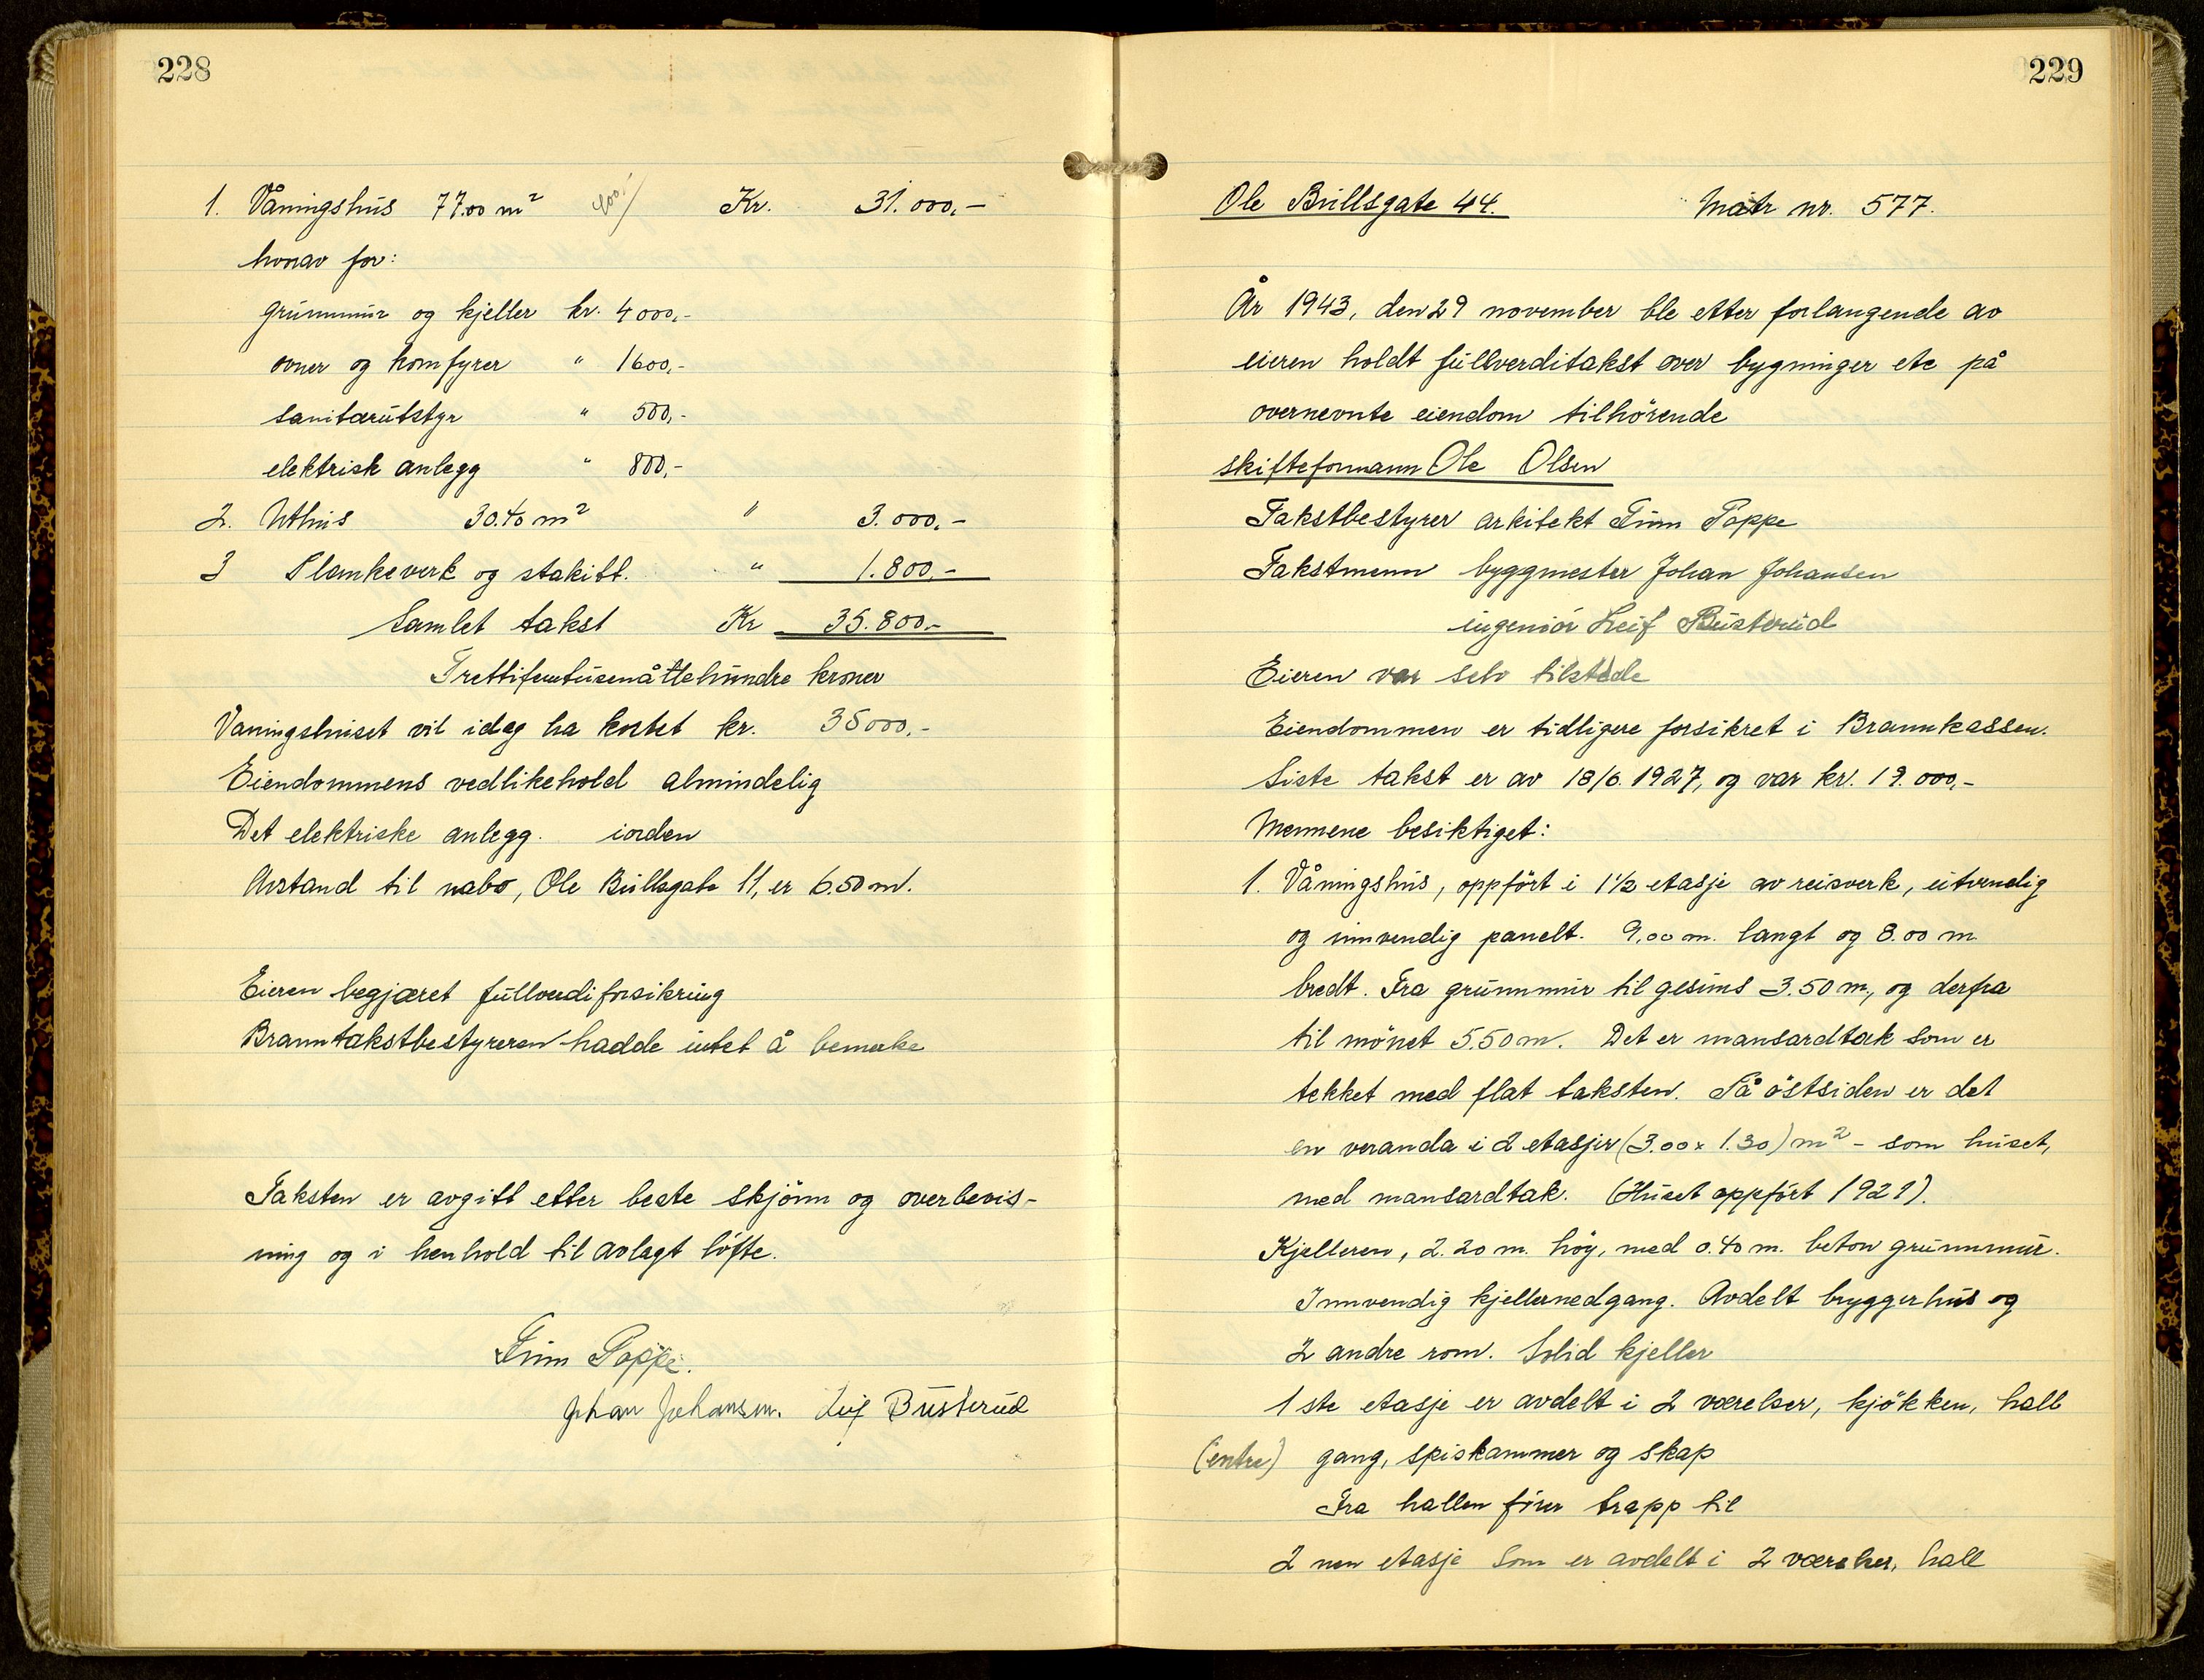 228
1. Våningshus 77.00 m² 400/ Kr. 31.000,-
hvorav for:
grunnmur og kjeller kr. 4000,-
ovner og komfyrer " 1600,-
sanitærutstyr " 500,-
elektrisk anlegg " 800,-
2. Uthus 30.40 m² " 3.000,-
3 Plankeverk og stakitt. " 1.800,-
Samlet takst Kr 35.800,-
Trettifemtusenåttehundre kroner
Våningshuset vil idag ha kostet kr. 35000,-
Eiendommens vedlikehold almindelig
Det elektriske anlegg. iorden
Avstand til nabo, Ole Bullsgate 11, er 6.50 m.
Eieren begjæret fullverdiforsikring
Branntakstbestyreren hadde intet å bemerke
Taksten er avgitt etter beste skjönn og overbevis-
ning og i henhold til avlagt löfte.
Finn Poppe.
Johan Johansen. Leif Busterud
229
Ole Bullsgate 44. Matr nr. 577.
År 1943, den 29 november ble etter forlangende av
eieren holdt fullverditakst over bygninger etc på
overnevnte eiendom tilhörende
skifteformann Ole Olsen
Takstbestyrer arkitekt Finn Poppe
Takstmenn byggmester Johan Johansen
ingeniör Leif Busterud
Eieren var selv tilstede
Eiendommen er tidligere forsikret i Brannkassen.
Siste takst er av 18/6. 1927, og var kr. 19.000,-
Mennene besiktiget:
1. Våningshus, oppfört i 1½ etasje av reisverk, utvendig
og innvendig panelt. 9,00 m. langt og 8.00 m
bredt. Fra grunnmur til gesims 3.50 m., og derfra
til mönet 5.50 m. Det er mansardtak som er
tekket med flat taksten. På östsiden er det
en veranda i 2 etasjer (3.00 x 1.30) m² - som huset,
med mansardtak. (Huset oppfört 1921).
Kjelleren, 2.20 m. höy, med 0.40 m. beton grunnmur.
Innvendig kjellernedgang. Avdelt bryggerhus og
2 andre rom. Solid kjeller
1 ste etasje er avdelt i 2 værelser, kjökken, hall
(entre) gang, spiskammer og skap
Fra hallen förer trapp til
2 nen etasje som er avdelt i 2 værelser, hall